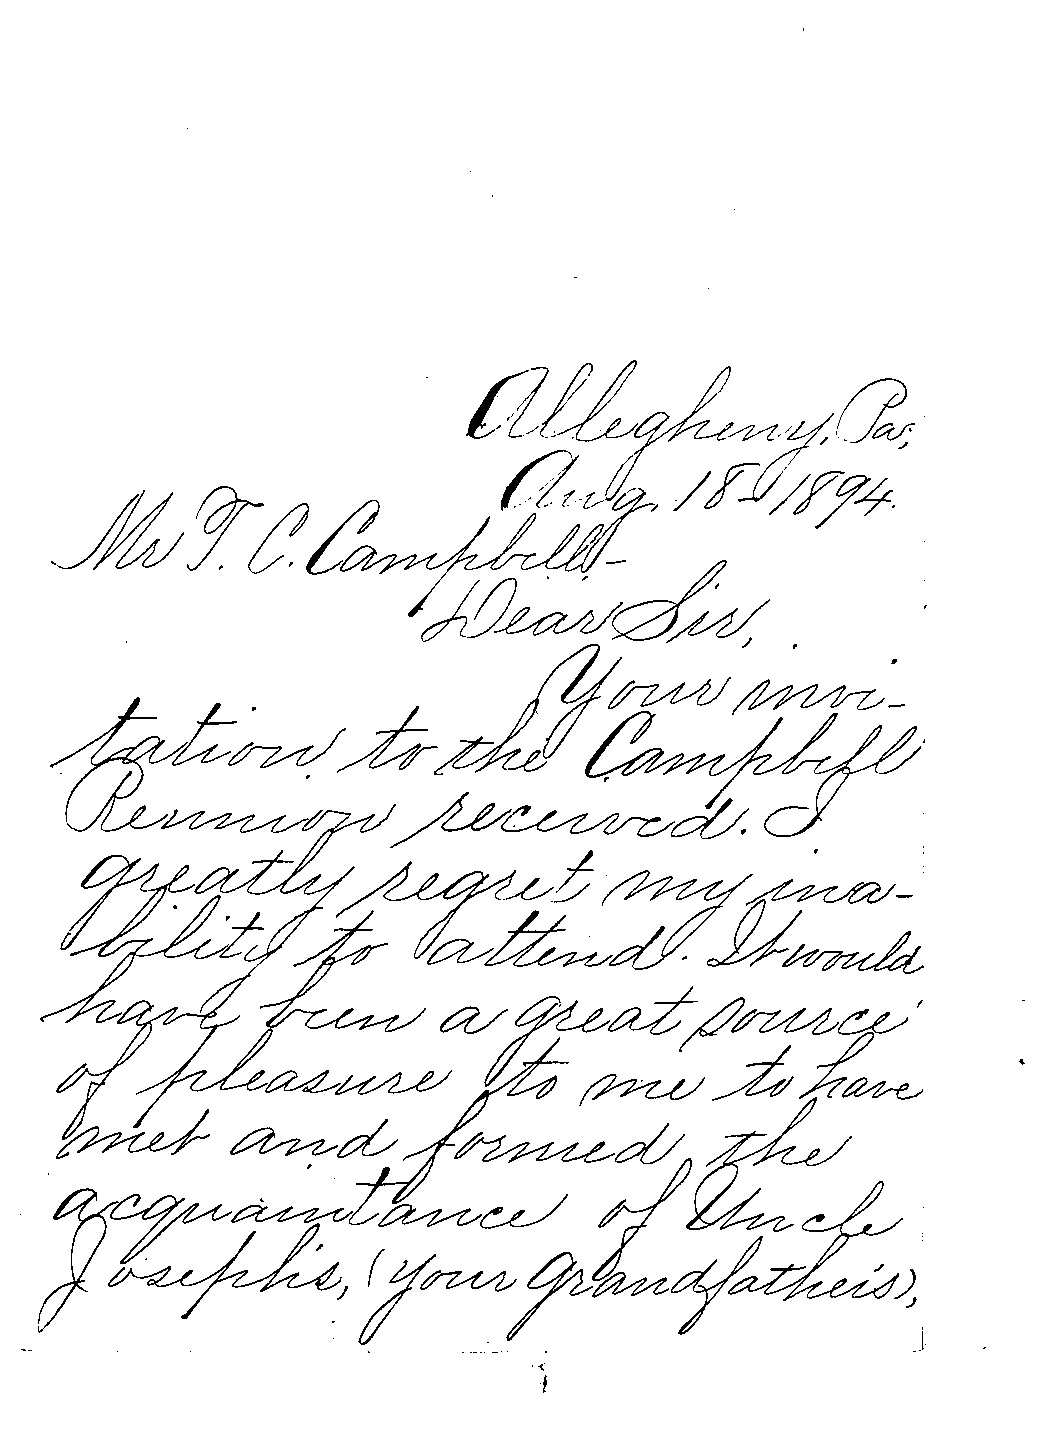 Allegheny, Pa,
Aug. 18- 1894.
Mr T. C. Campbell,-
Dear Sir,
Your invi-
tation to the Campbell
Reunion received. I
greatly regret my ina-
bility to attend. It would
have been a great source
of pleasure to me to have
met and formed the
acquaintance of Uncle
Joseph's, (your Grandfather's),